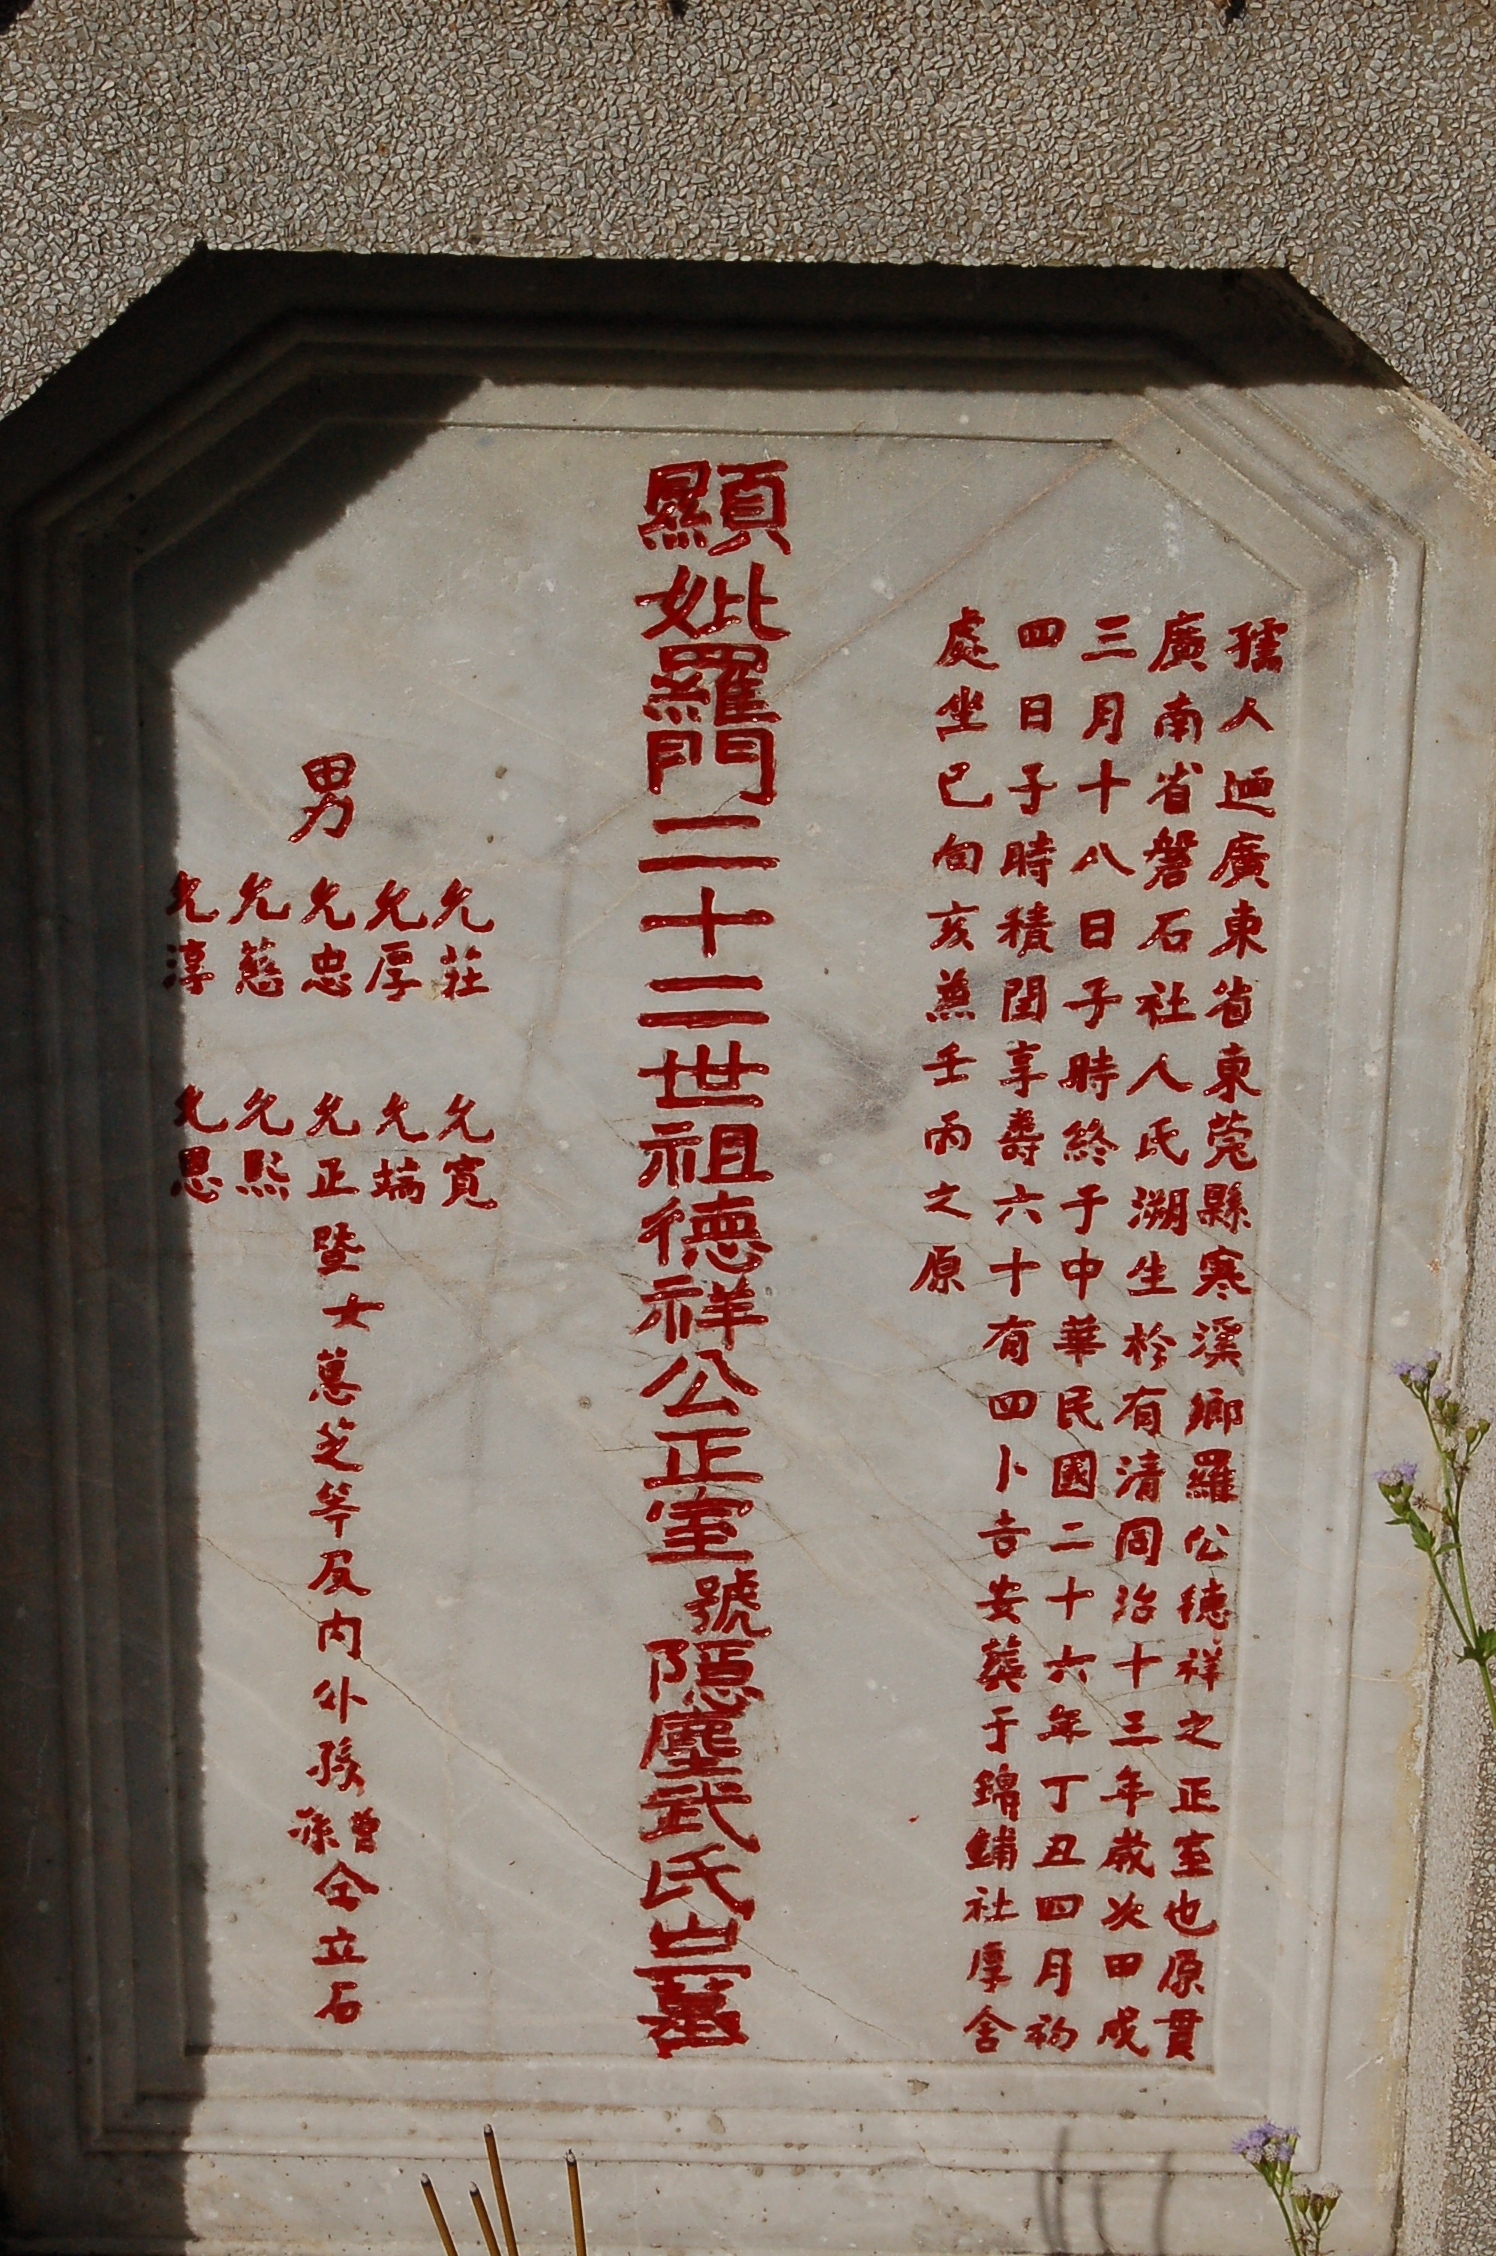 孺人迺廣東省東莞縣寒溪鄉羅公德祥之正室也原貫
廣南省磐石社人氏溯生於有清同治十三年歲次甲戌
三月十八日子時終于中華民國二十六年丁丑四月初
四日子時積閏享壽六十有四卜吉安葬于錦鋪社厚舍
處坐巳向亥兼壬丙之原
顯妣羅門二十二世祖德祥公正室號隱塵武氏之墓
男
允莊 允寬
允厚 允端
允忠 允正
允慈 允熙
允淳 允恩
暨女蔥芝等及內外孫曾孫仝立石